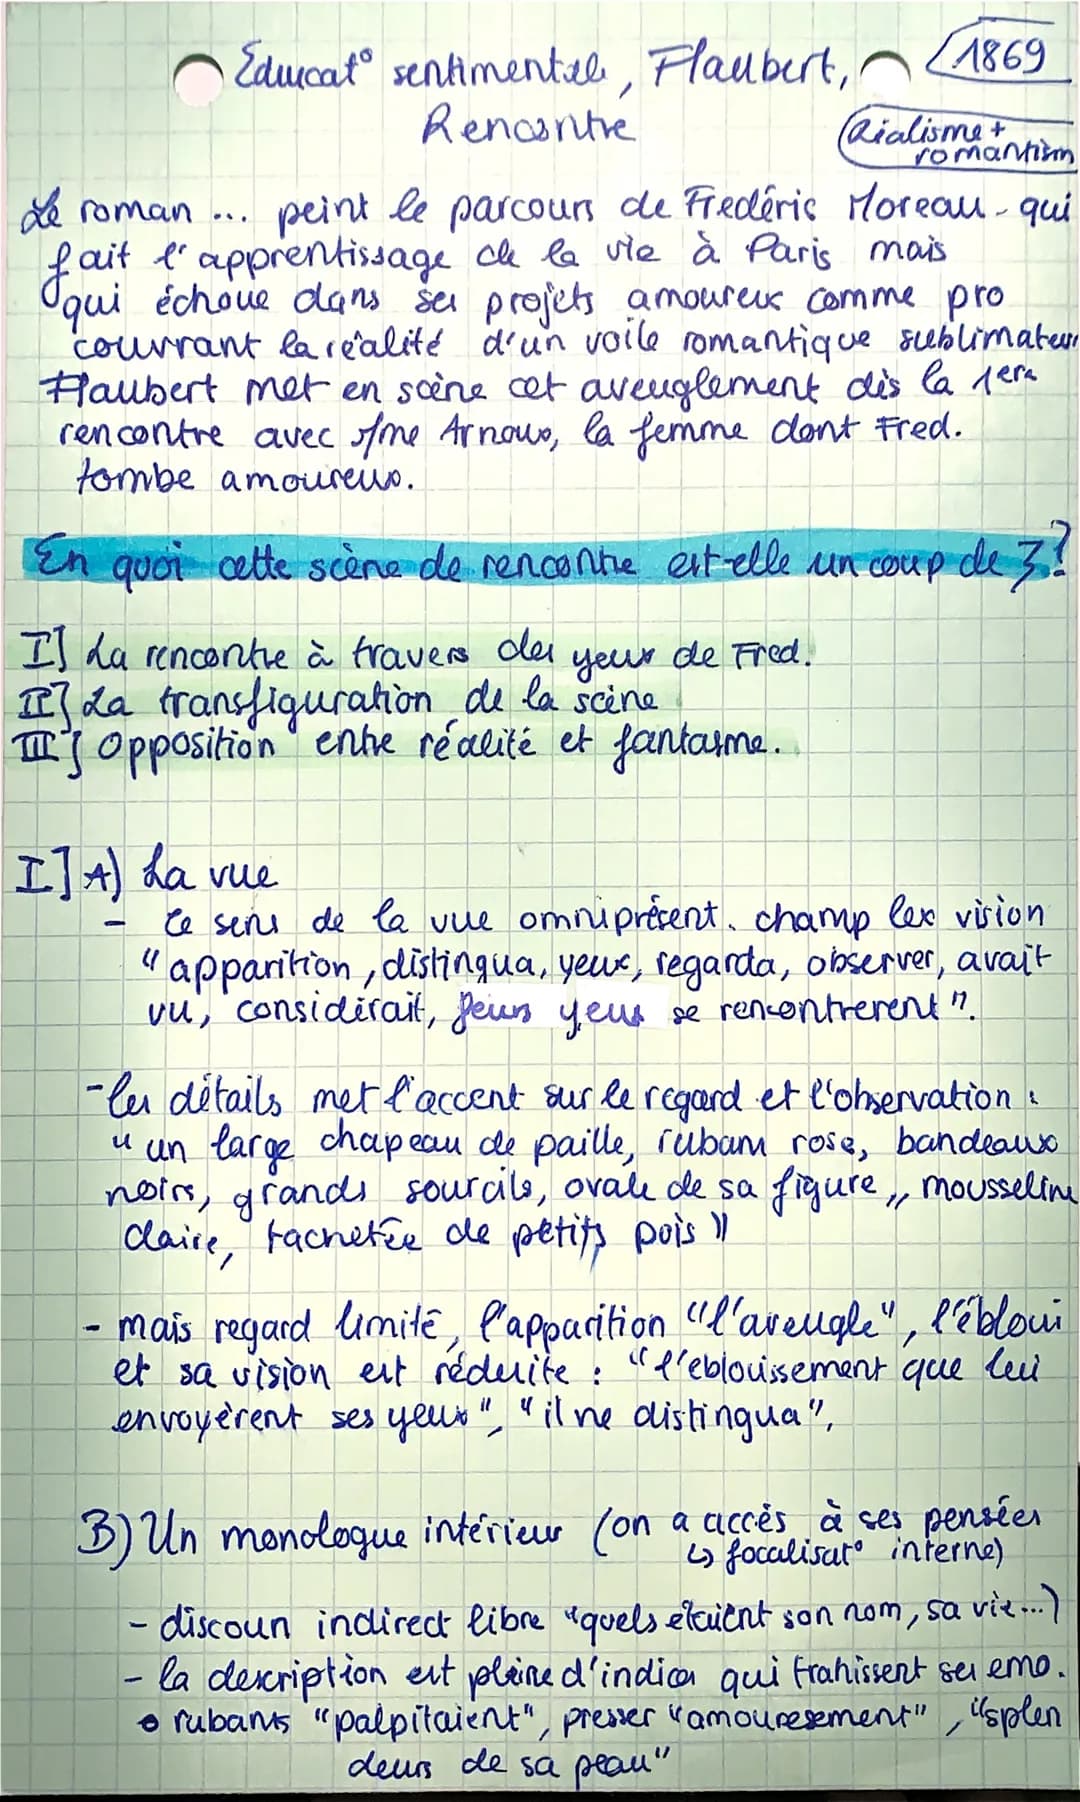 Educat° sentimentale, Flaubert, 1869
Rencontre
Réalisme +
romantism
Le roman ... peint le parcours de Frédéric Moreau - qui
fait l'apprentissage de la vie à Paris mais
qui échoue dans ses projets amoureux comme pro
couvrant la réalité d'un voile romantique sublimateur
Flaubert met en scène cet aveuglement dès la 1ere
rencontre avec Mme Arnoux, la femme dont Fred.
tombe amoureux.
En quoi cette scène de rencontre est-elle un coup de 3?
I] La rencontre à travers des yeux de Fred.
II] La transfiguration de la scène
III] Opposition entre réalité et fantasme.
I] A) La vue
- Le sens de la vue omniprésent. champ lex vision
"apparition, distingua, yeux, regarda, observer, avait
vu, considérait, leurs yeux se rencontrerent".
- les détails met l'accent sur le regard et l'observation :
"un large chapeau de paille, rubans rose, bandeaux
noirs, grands sourcils, ovale de sa figure,, mousseline
claire, tachetée de petits pois"
- mais regard limité, l'apparition "l'aveugle", l'ébloui
et sa vision est réduite : "l'eblouissement que lui
envoyèrent ses yeux", "il ne distingua",
B) Un monologue intérieur (on a accès à ses pensées
↳ focalisat° interne)
- discours indirect libre "quels étaient son nom, sa vie...)
- la description est pleine d'indices qui trahissent ses emo.
• rubans "palpitaient", presser "amouresement", "splen
deurs de sa peau"